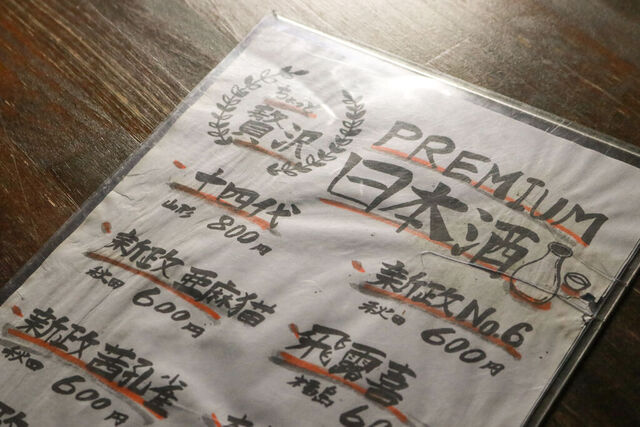 ちょっと
贅沢
PREMIUM
日本酒
十四代
山形 800円
新政 亜麻猫
秋田 600円
新政 No.6
秋田 600円
新政 茜孔雀
秋田 600円
飛露喜
福島 60